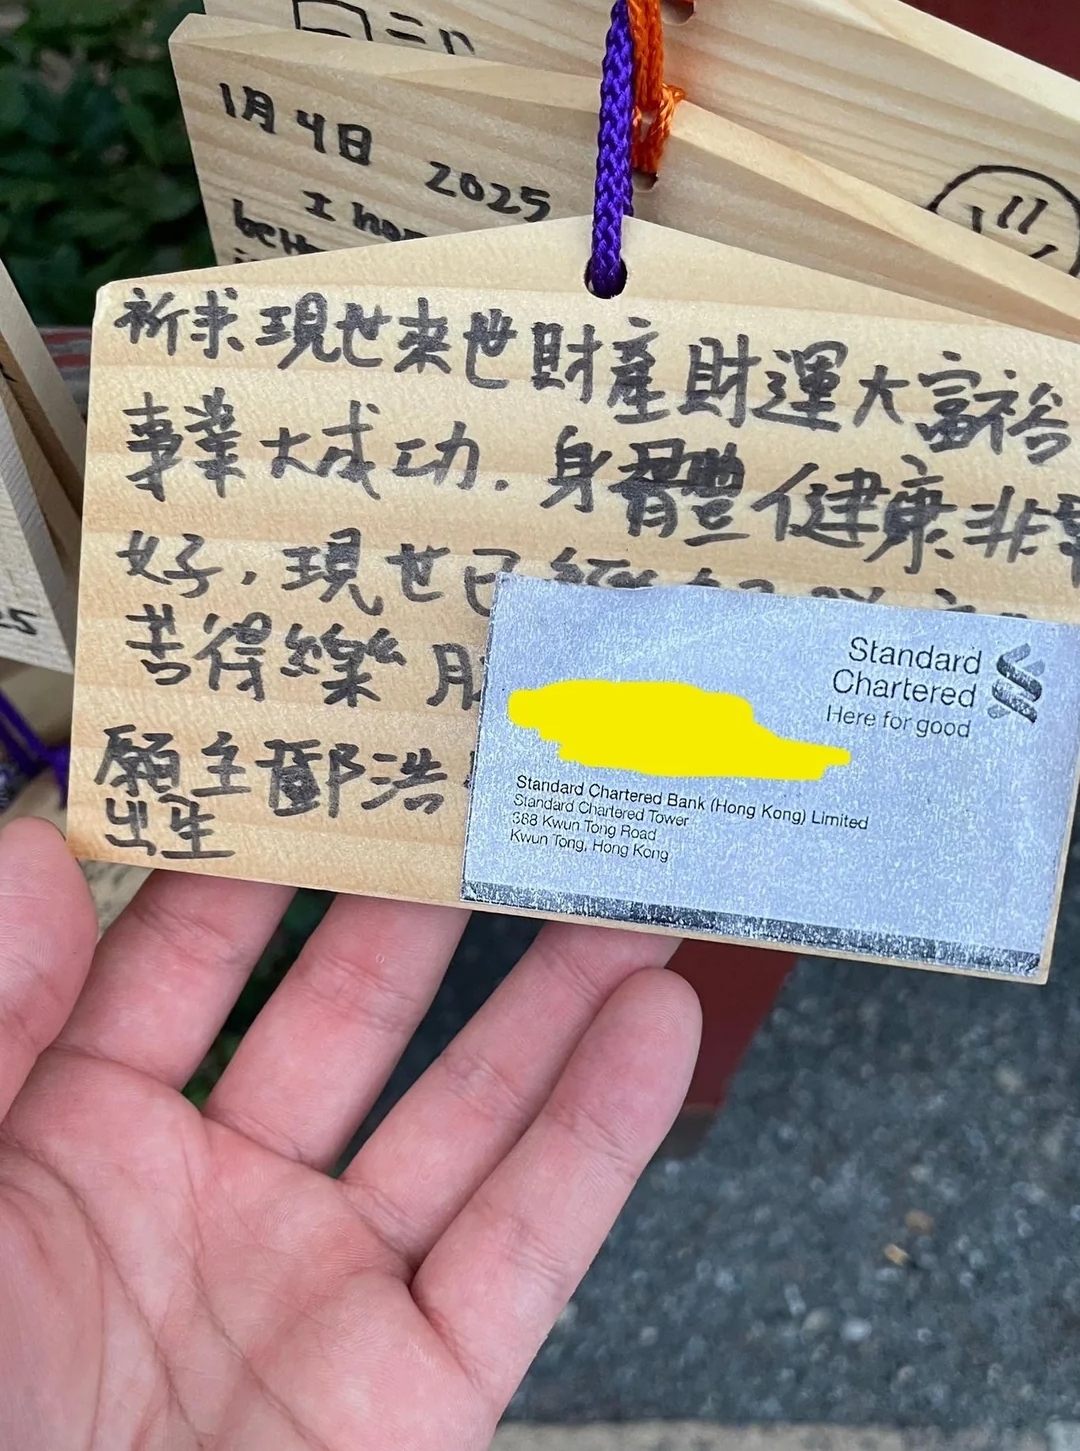 1月4日 2025
I hop
祈求現世來世財產財運大富裕
事業大成功．身體健康非常
好，現世已經
苦得樂
願主鄧浩
出生
Standard
Chartered
Here for good
Standard Chartered Bank (Hong Kong) Limited
Standard Chartered Tower
388 Kwun Tong Road
Kwun Tong, Hong Kong